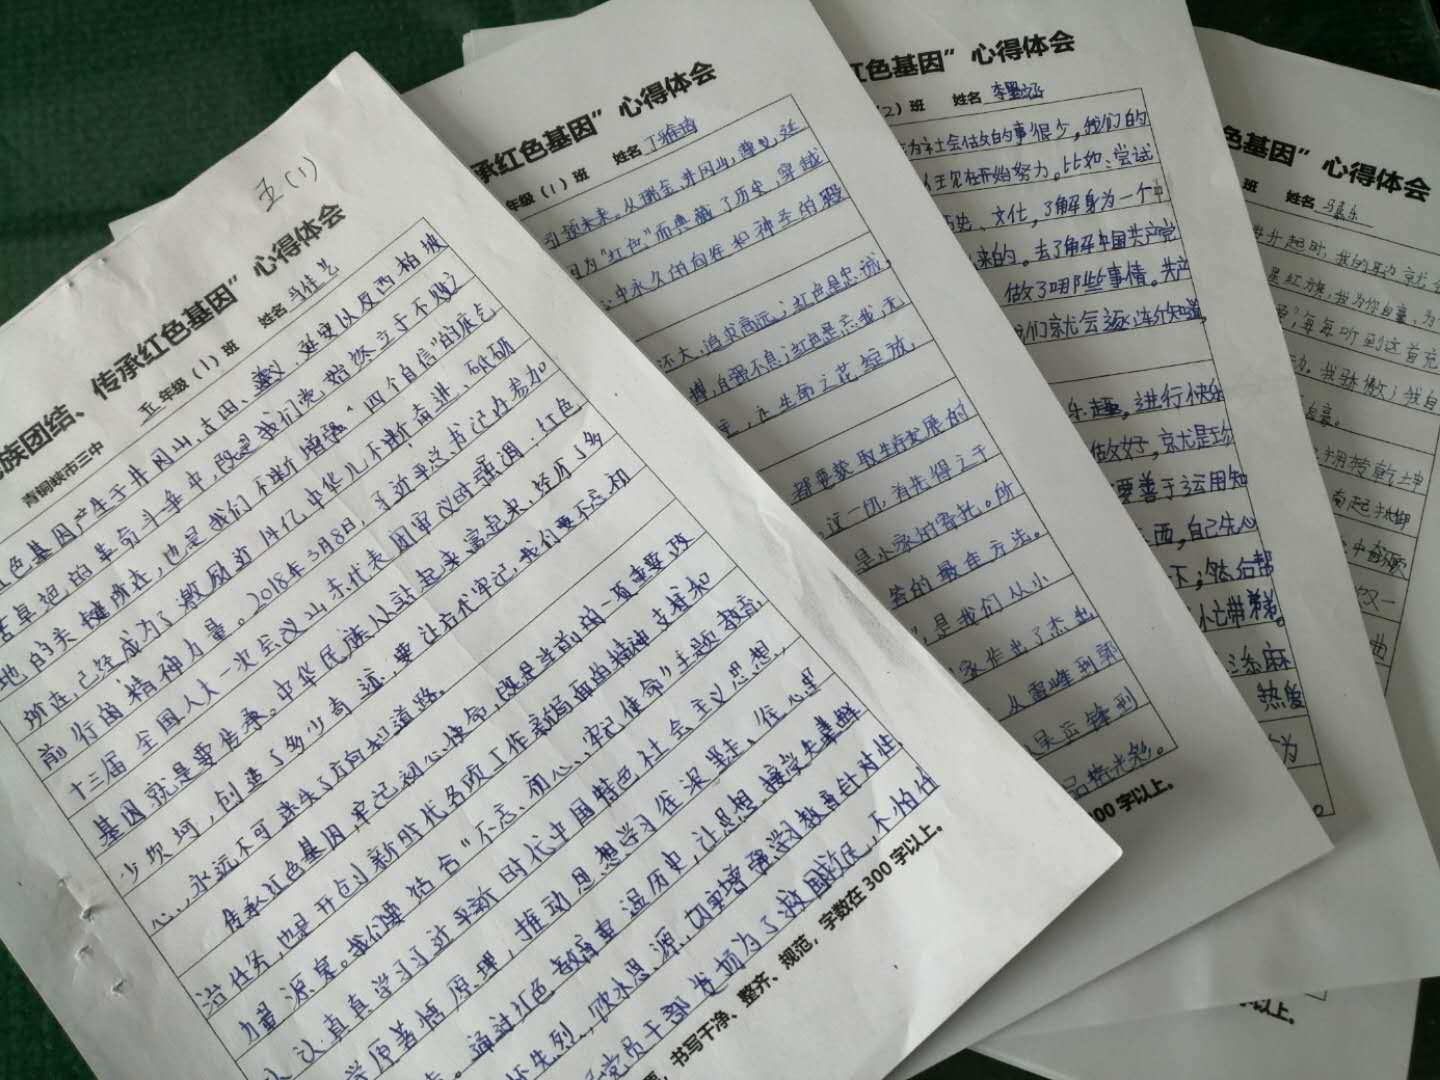 五(1)
族团结、传承红色基因”心得体会
青铜峡市三中 五年级(1)班 姓名 马佳艺
色基因产生于井冈山、古田、遵义、延安以及西柏坡
苦卓绝的革命斗争中,既是我们党始终立于不败之
地的关键所在,也是我们不断增强“四个自信”的底气
所在,已经成为了激励近14亿中华儿不断奋进、砥砺
前行的精神力量。2018年3月8日,习近平总书记在参加
十三届全国人大一次会议山东代表团审议时强调:红色
基因就是要传承。中华民族从站起来富起来,经历了多
少坎坷,创造了多少奇迹,要让后代牢记,我们要不忘初
心,永远不可迷失了方向和道路。
传承红色基因,牢记初心使命,既是当前的一项重要政
治任务,也是开创新时代各项工作新局面的精神支柱和
力量源泉。我们要结合“不忘初心、牢记使命”主题教育,
认真学习习近平新时代中国特色社会主义思想,
学原著悟原理,推动思想学习往深里走、往心里
通过红色教育重温历史,让思想接受先辈鲜
怀先烈,饮水思源,切实增强学习教育针对性
党员干部发扬为了救国救民,不怕任
书写干净、整齐、规范,字数在300字以上。
承红色基因”心得体会
年级(1)班 姓名 丁雅茹
引领未来。从瑞金、井冈山、遵义、延
因为“红色”而典藏了历史,穿越
心中永久的向往和神圣的殿
还大,追求高远;红色是忠诚,
搏,自强不息;红色是忘我,无
,让生命之花绽放,
都要获取生存发展的
这一切,首先得之于
是小家的寄托。所
答的最佳方法。
,是我们从小
家作出了杰出
从雷锋到郭
吴运铎到
己发光发。
00字以上。
红色基因”心得体会
(2)班 姓名 李墨涵
为社会做故的事很少,我们的
在现在开始努力。比如:尝试
历史、文化,了解身为一个中
来的。去了解中国共产党
做了哪些事情。共产
们就会逐渐知道,
乐趣,进行快乐
做好,就是珍
要善于运用知
西,自己先心
下;然后帮
小七带弟弟
三添麻
热爱
为
色基因”心得体会
班 姓名 马嘉乐
升起时,我的努力就会
星红旗,我为你自豪,为
”,每每听到这首充
力。我骄傲,我自
自豪。
以上。